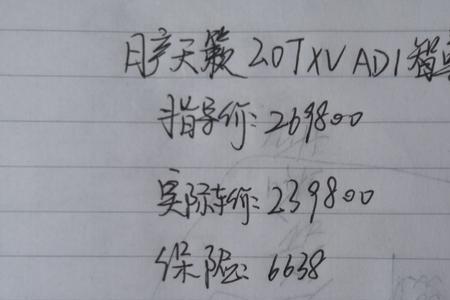 日产天籁2.0T XV AD1智
指导价:269800
实际车价:239800
保险:6638